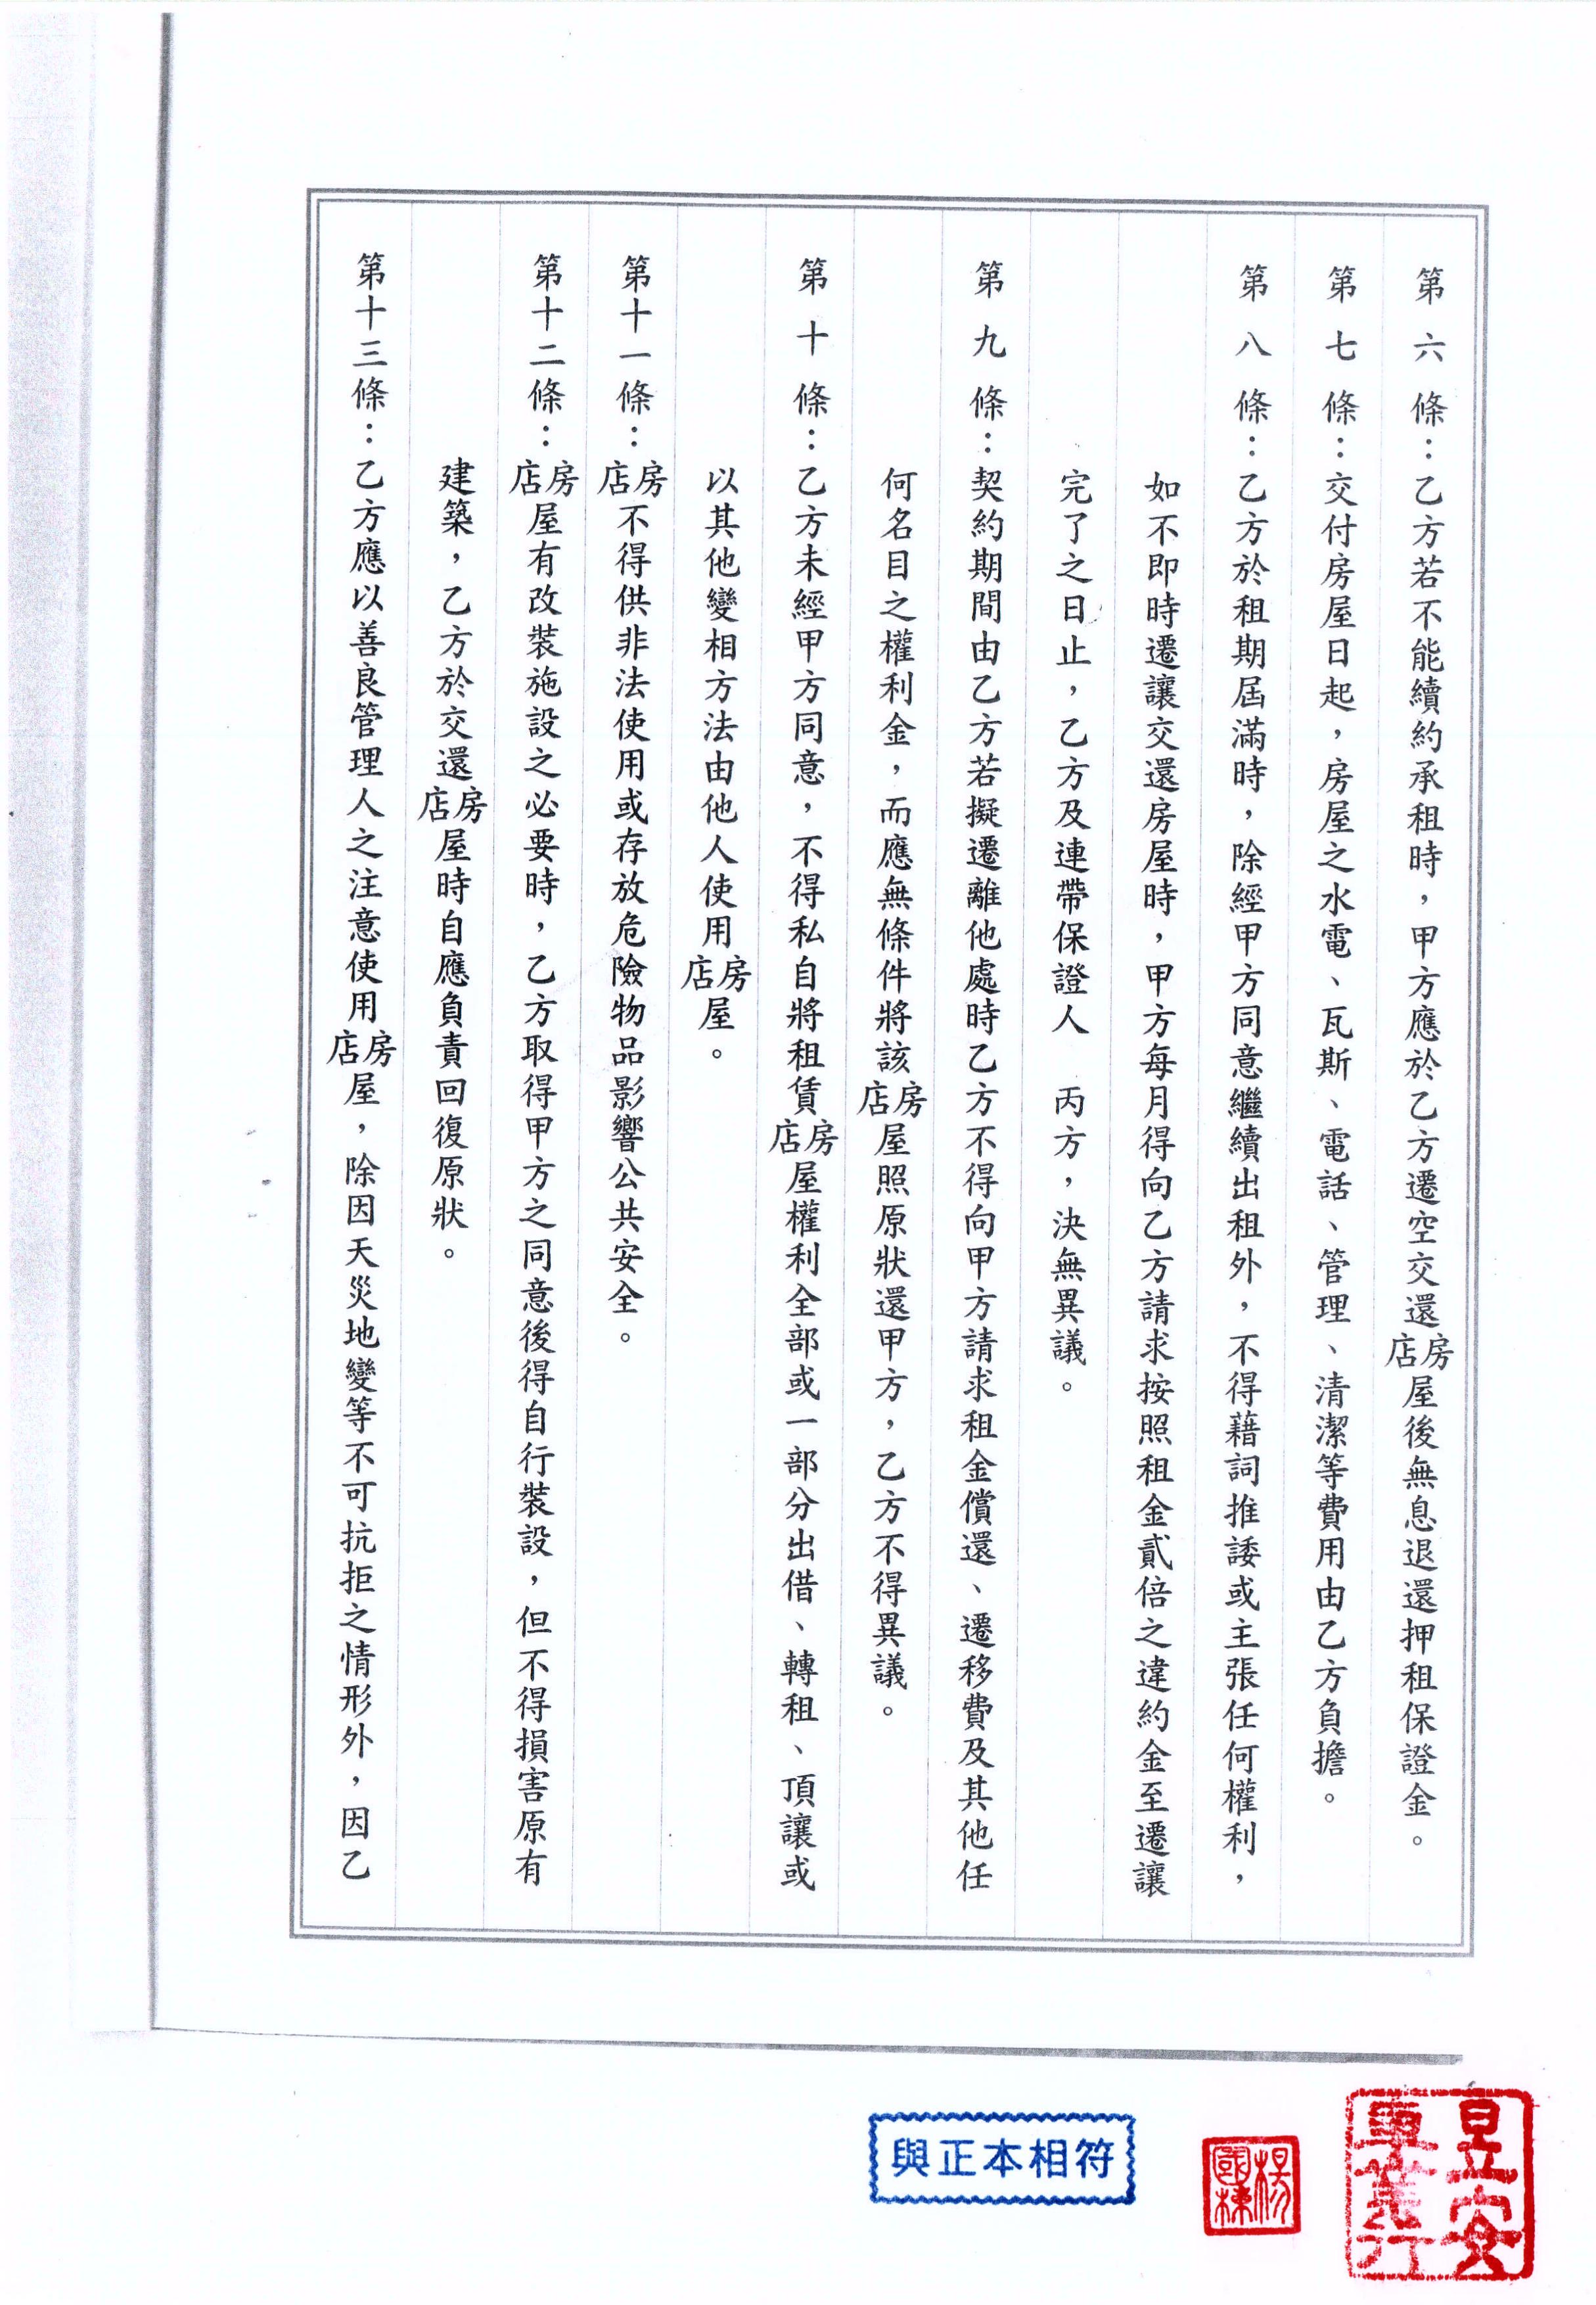 第六條：乙方若不能續約承租時，甲方應於乙方遷空交還店房屋後無息退還押租保證金。
第七條：交付房屋日起，房屋之水電、瓦斯、電話、管理、清潔等費用由乙方負擔。
第八條：乙方於租期屆滿時，除經甲方同意繼續出租外，不得藉詞推諉或主張任何權利，
如不即時遷讓交還房屋時，甲方每月得向乙方請求按照租金貳倍之違約金至遷讓
完了之日止，乙方及連帶保證人　丙方，決無異議。
第九條：契約期間由乙方若擬遷離他處時乙方不得向甲方請求租金償還、遷移費及其他任
何名目之權利金，而應無條件將該店房屋照原狀還甲方，乙方不得異議。
第十條：乙方未經甲方同意，不得私自將租賃店房屋權利全部或一部分出借、轉租、頂讓或
以其他變相方法由他人使用店房屋。
第十一條：店房不得供非法使用或存放危險物品影響公共安全。
第十二條：店房屋有改裝施設之必要時，乙方取得甲方之同意後得自行裝設，但不得損害原有
建築，乙方於交還店房屋時自應負責回復原狀。
第十三條：乙方應以善良管理人之注意使用店房屋，除因天災地變等不可抗拒之情形外，因乙
與正本相符
楊國棟
昱安車業行